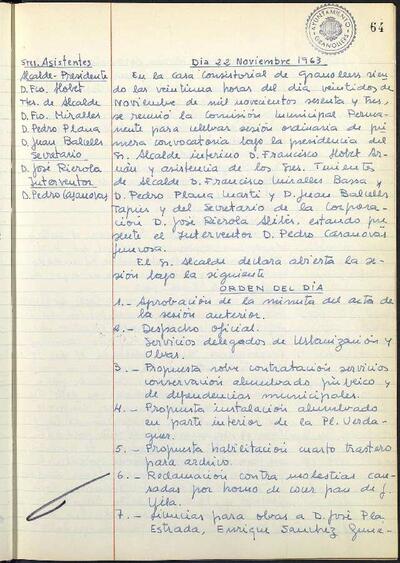 64
AYUNTAMIENTO
GRANOLLERS
Sres. Asistentes
Alcalde-Presidente
D. Fco. Llobet
Ttes. de Alcalde
D. Fco. Miralles
D. Pedro Plana
D. Juan Babilés
Secretario
D. José Rierola
Interventor
D. Pedro Casanovas
Día 22 Noviembre 1963
En la Casa Consistorial de Granollers sien-
do las veintiuna horas del día veintidos de
Noviembre de mil novecientos sesenta y tres,
se reunió la Comisión Municipal Perma-
nente para celebrar sesión ordinaria de pri
mera convocatoria bajo la presidencia del
Sr. Alcalde interino D. Francisco Llobet Ar-
nán y asistencia de los Sres. Tenientes
de Alcalde D. Francisco Miralles Bassa y
D. Pedro Plana Martí y D. Juan Babilés
y del Secretario de la Corpora-
ción D. José Rierola estando pre
sente el Interventor D. Pedro Casanovas
Junrosa.
El Sr. Alcalde declara abierta la se-
sión bajo la siguiente
ORDEN DEL DIA
1.- Aprobación de la minuta del acta de
la sesión anterior.
2.- Despacho oficial.
Servicios delegados de Urbanización y
Obras.
3.- Propuesta sobre contratación servicios
conservación alumbrado público y
de dependencias municipales.
4.- Propuesta instalación alumbrado
en parte interior de la Pl. Verda-
guer.
5.- Propuesta habilitación cuarto trastero
para archivo.
6.- Reclamación contra molestias cau-
sadas por horno de cocer pan de J.
Vila.
7.- Licencias para obras a D. José Plà
Estrada, Enrique Sanchez